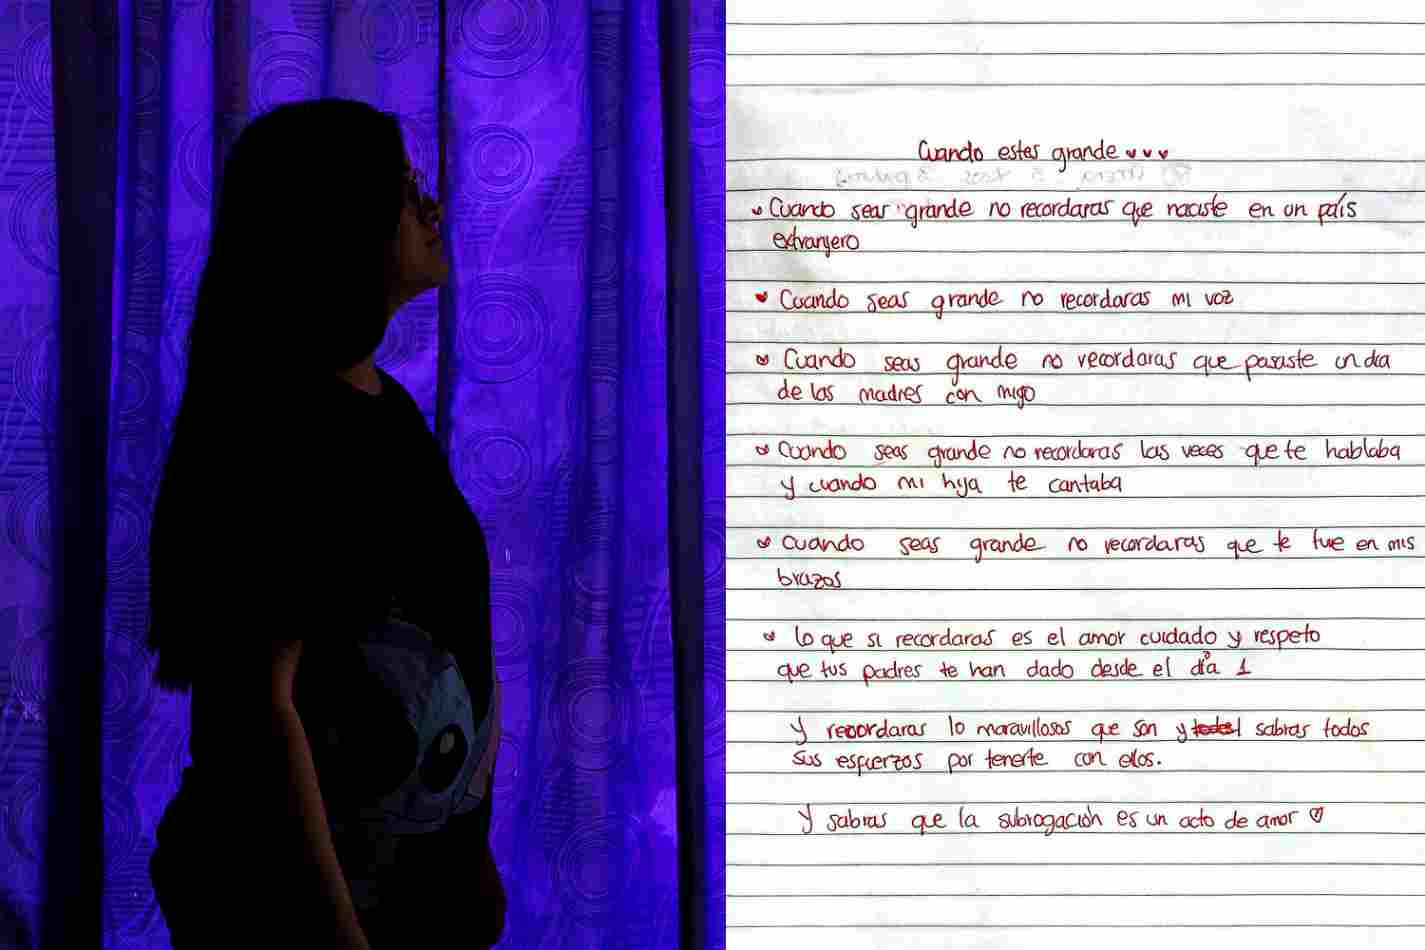 Cuando estes grande
Cuando seas grande no recordaras que naciste en un país
extranjero
Cuando seas grande no recordaras mi voz
Cuando seas grande no recordaras que pasaste un dia
de las madres con migo
Cuando seas grande no recordaras las veces que te hablaba
y cuando mi hija te cantaba
Cuando seas grande no recordaras que te tuve en mis
brazos
lo que si recordaras es el amor cuidado y respeto
que tus padres te han dado desde el día 1
y recordaras lo maravillosos que son y sabras todos
sus esfuerzos por tenerte con ellos.
Y sabras que la subrogación es un acto de amor